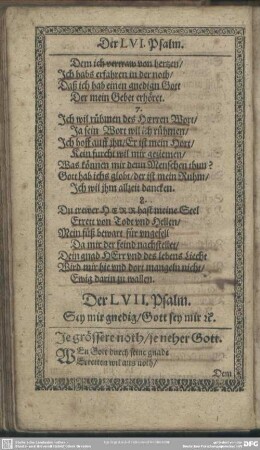 Der LVI. Psalm.
Dem ich vertraw von hertzen/
Ich habs erfahren in der noth/
Daß ich hab einen gnedign Gott
Der mein Gebet erhöret.
7.
Ich wil rühmen des HErren Wort/
Ja sein Wort wil ich rühmen/
Ich hoff auff ihn/ Er ist mein Hort/
Kein furcht wil mir geziemen/
Was können mir denn Menschen thun?
Gott hab ichs globt/ der ist mein Ruhm/
Ich wil ihm allzeit dancken.
8.
Du trewer HERR hast meine Seel
Errett von Todt vnd Hellen/
Mein füß bewart für vngfell
Da mir der feind nachstellet/
Dein gnad HErr vnd des lebens Liecht
Wird mir hie vnd dort mangeln nicht/
Ewig darin zu wallen.
Der LVII. Psalm.
Sey mir gnedig/ Gott sey mir ꝛc.
Je grössere noth/ je neher Gott.
WEn Gott durch seine gnade
Erretten wil aus noth/
Dem
DFG